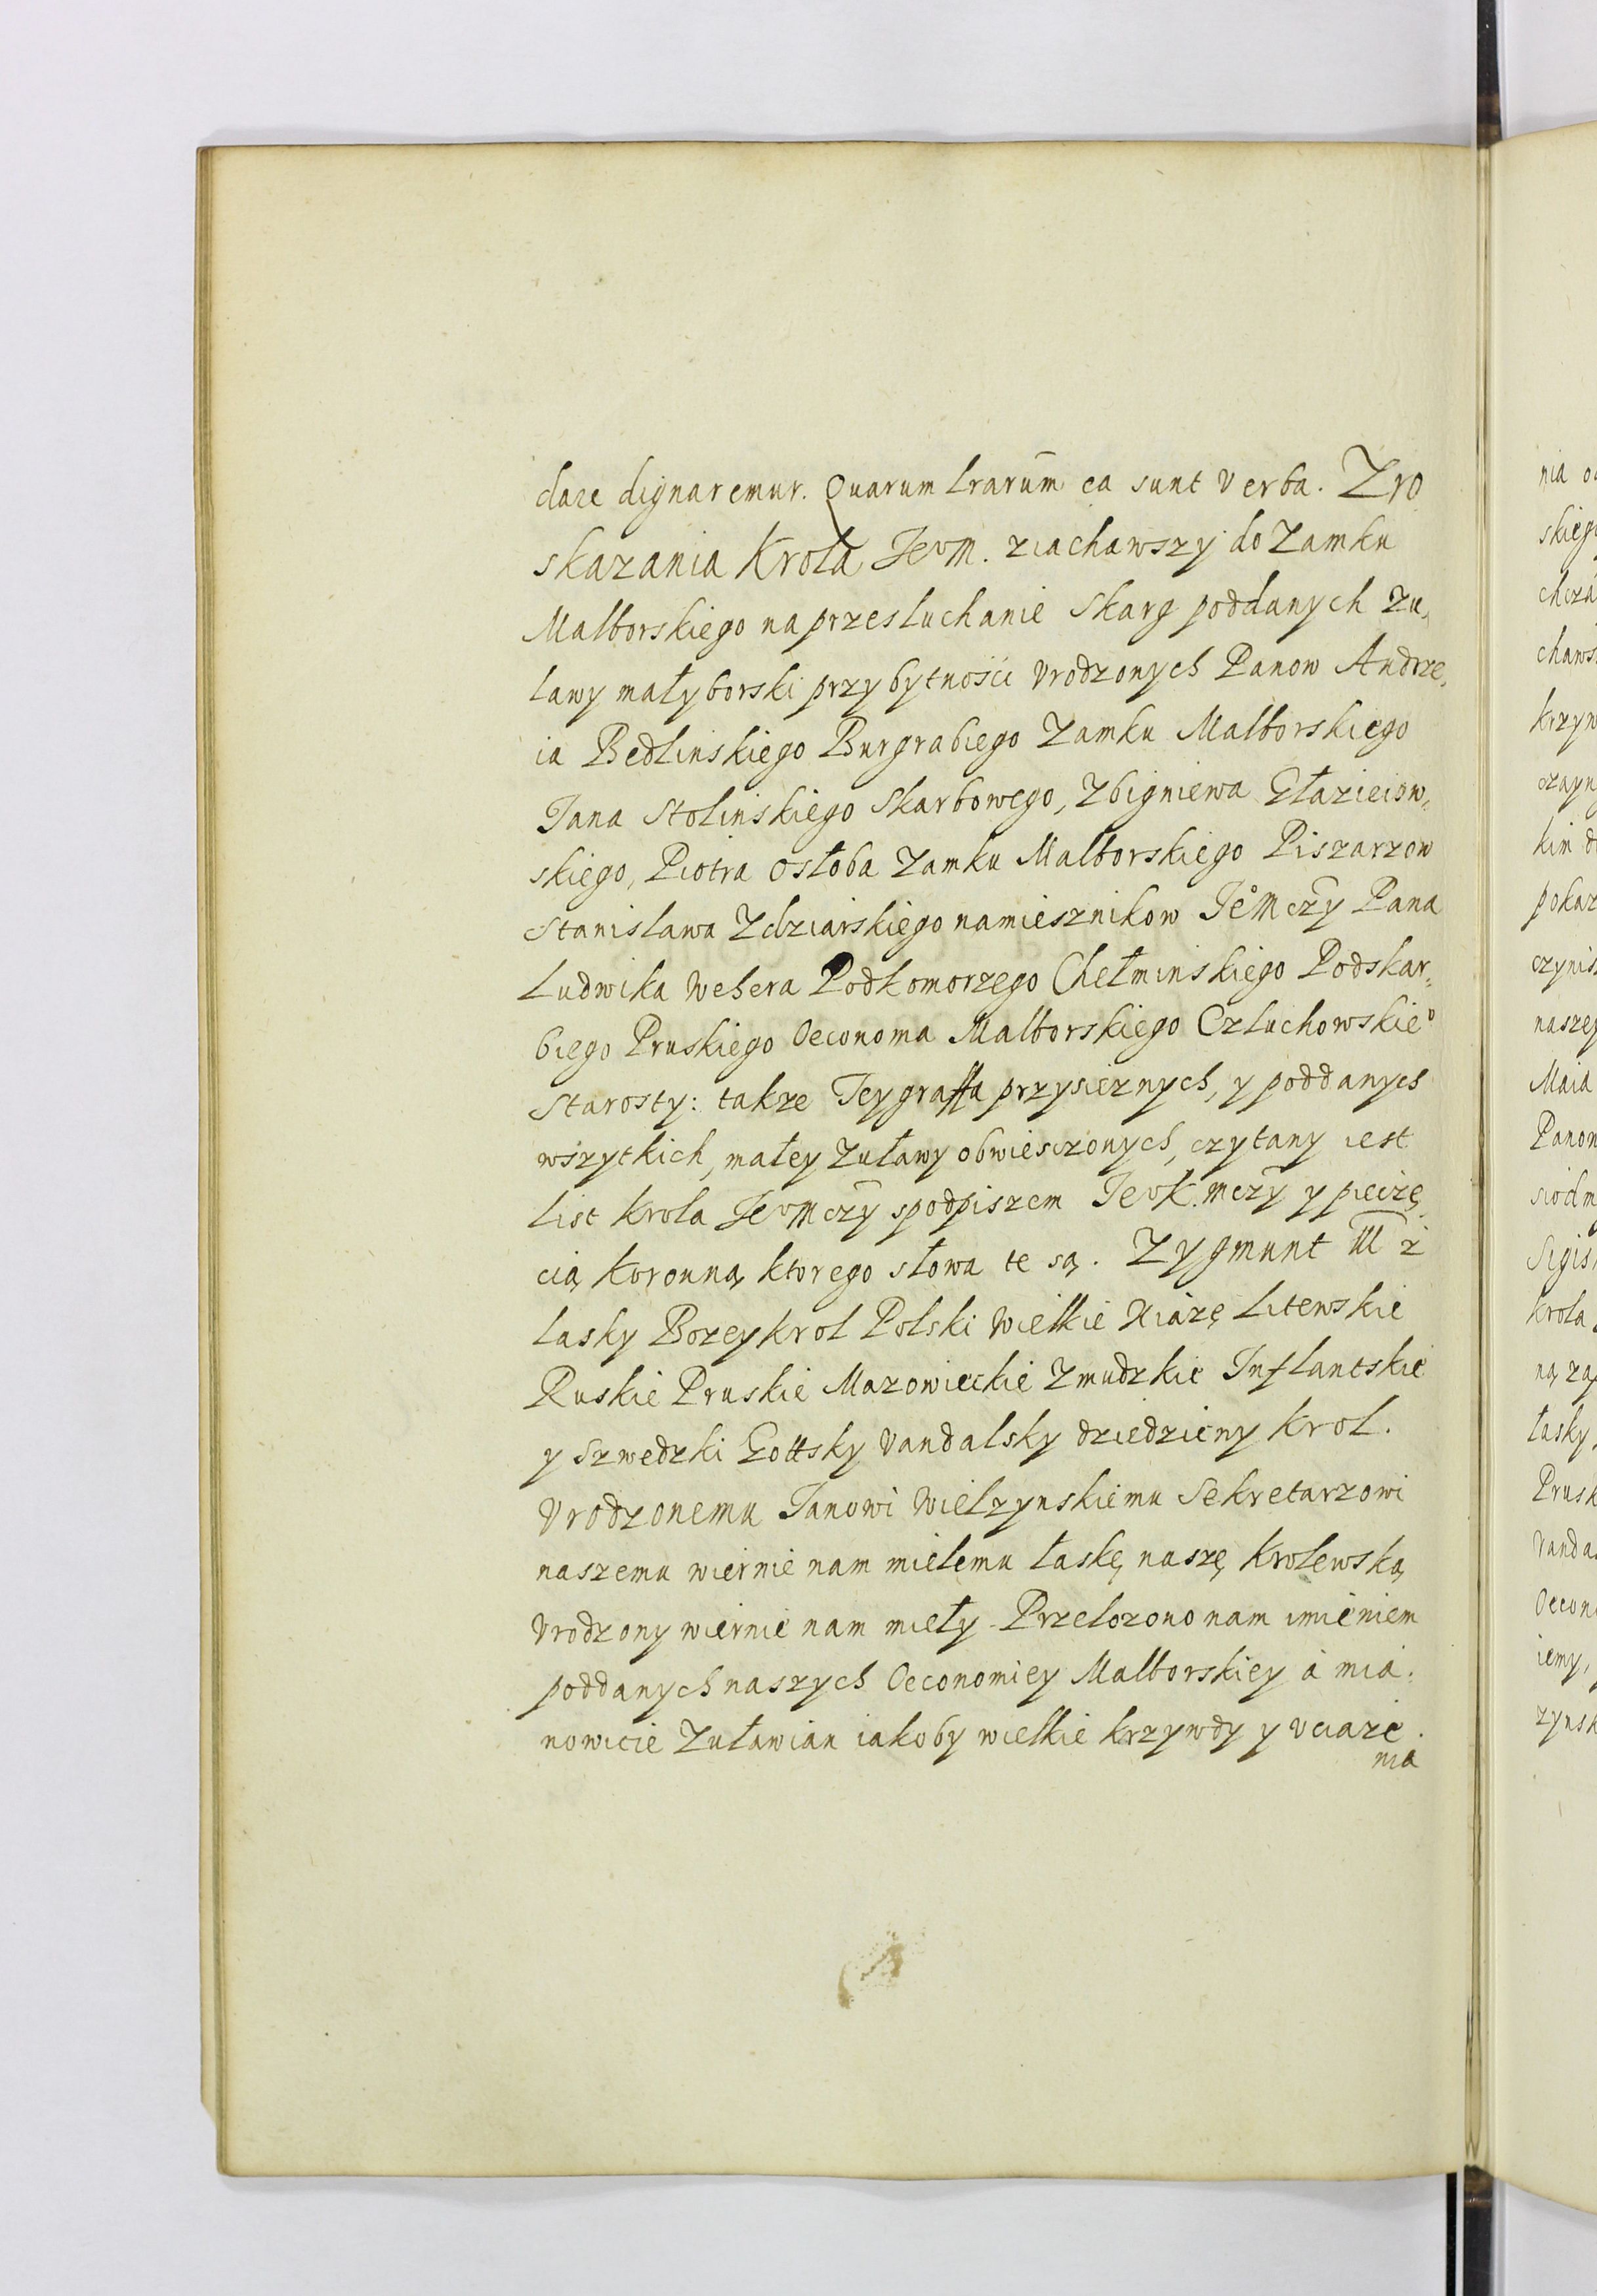 dare dignaremur. Quarum Lrarum̃ ea sunt verba. Zro
skazania Krola JeoM. ziachawszy do Zamku
Malborskiego na przesluchanie skarg poddanych Zu,
lawy małyborski przybytnośći Vrodzonych Panow Andrze,
ia Bedlinskiego Burgrabiego Zamku Malborskiego
Jana Stolinskiego Skarbowego, Zbigniewa Głazieiow,
skiego, Piotra Osłoba Zamku Malborskiego Piszarzow
Stanislawa Zdziarskiego namiesznikow JeoMczy Pana
Ludwika Wehera Podkomorzego Chełminskiego Podskar,
biego Pruskiego Oeconoma Malborskiego Czluchowskieo
Starosty: takze Teygraffa przysieznych, y poddanych
wszytkich, małey Zuławy obwiesczonych, czytany iest
List Krola JeoMczy spodpiszem JeoK.Mczy y pieczę,
cią Koronną, ktorego słowa te są. Zygmunt III z
lasky Bozey Krol Polski Wielkie Xiążę Litewskie
Ruskie Pruskie Mazowieckie Zmudzkie Inflantskie
y Szwedzki Gottsky Vandalsky dziedziczny Krol.
Vrodzonemu Janowi Wielzynskiemu Sekretarzowi
naszemu wiernie nam mielemu łaskę naszę Krolewską,
Vrodzony wiernie nam mieły. Przelozono nam imieniem
poddanych naszych Oeconomiey Malborskiey à mia,
nowicie Zuławian iakoby wielkie krzywdy y vciaze,
nia